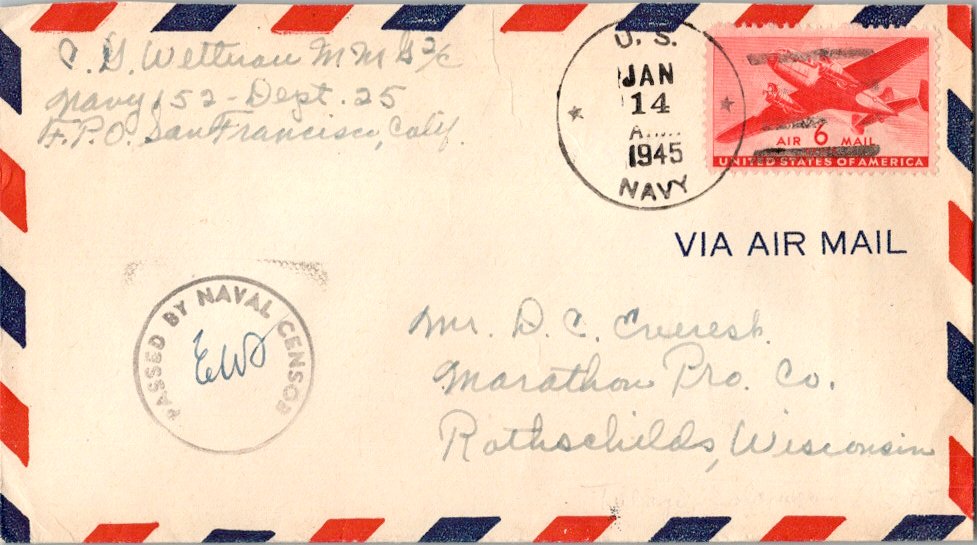 C. G. Wettrau M M S 2/c
Navy 152 - Dept. 25
F.P.O. San Francisco, Calif.
U. S.
JAN
14
A.M.
1945
NAVY
AIR 6 MAIL
UNITED STATES OF AMERICA
VIA AIR MAIL
PASSED BY NAVAL CENSOR
EWS
Mr. D. C. Everest
Marathon Pro. Co.
Rothschilds, Wisconsin